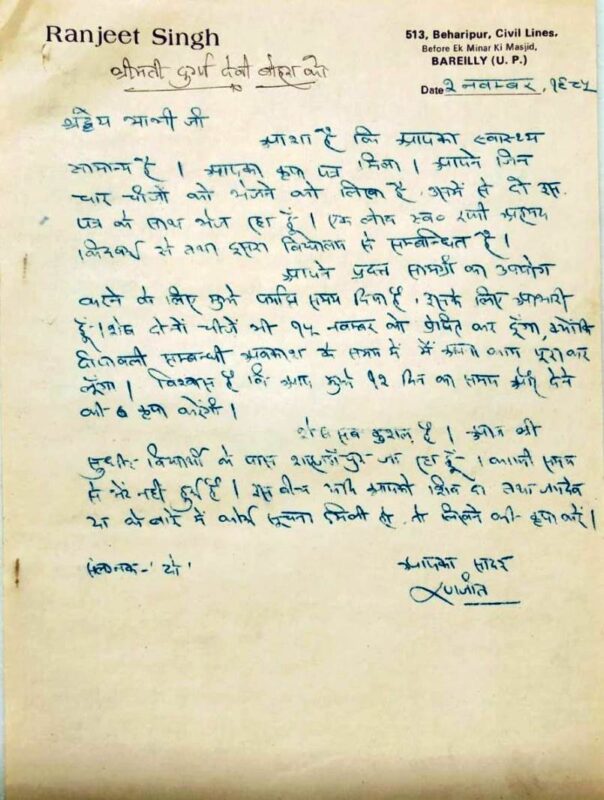 Ranjeet Singh
513, Beharipur, Civil Lines.
Before Ek Minar Ki Masjid,
BAREILLY (U. P.)
श्रीमती दुर्गा देवी बोहरा को
Date २ नवम्बर, १९८५
श्रद्धेय भाभी जी
आशा है कि आपका स्वास्थ्य
सामान्य है । आपका कृपा पत्र मिला । आपने जिन
चार चीजों को भेजने को लिखा है, उनमें से दो इस
पत्र के साथ भेज रहा हूँ । एक स्व०
से तथा दूसरा से सम्बन्धित है ।
आपने प्रदत्त सामग्री का उपयोग
करने के लिए मुझे पर्याप्त समय दिया है, उसके लिए आभारी
हूँ । शेष दोनों चीजें भी १५ नवम्बर को प्रेषित कर दूँगा, क्योंकि
दीपावली सम्बन्धी अवकाश के समय में मैं अपना काम पूरा कर
लूँगा । विश्वास है कि आप मुझे १२ दिन का समय और देने
की कृपा करेंगी ।
शेष सब कुशल है । आज श्री
सुधीर विद्यार्थी के पास शाहजहाँपुर जा रहा हूँ । काफी समय
से भेंट नहीं हुई है । इस बीच यदि आपको शिव दा तथा जयदेव
दा के बारे में कोई सूचना मिली हो, तो लिखने की कृपा करें ।
संलग्नक - 'दो'
आपका सादर
रणजीत